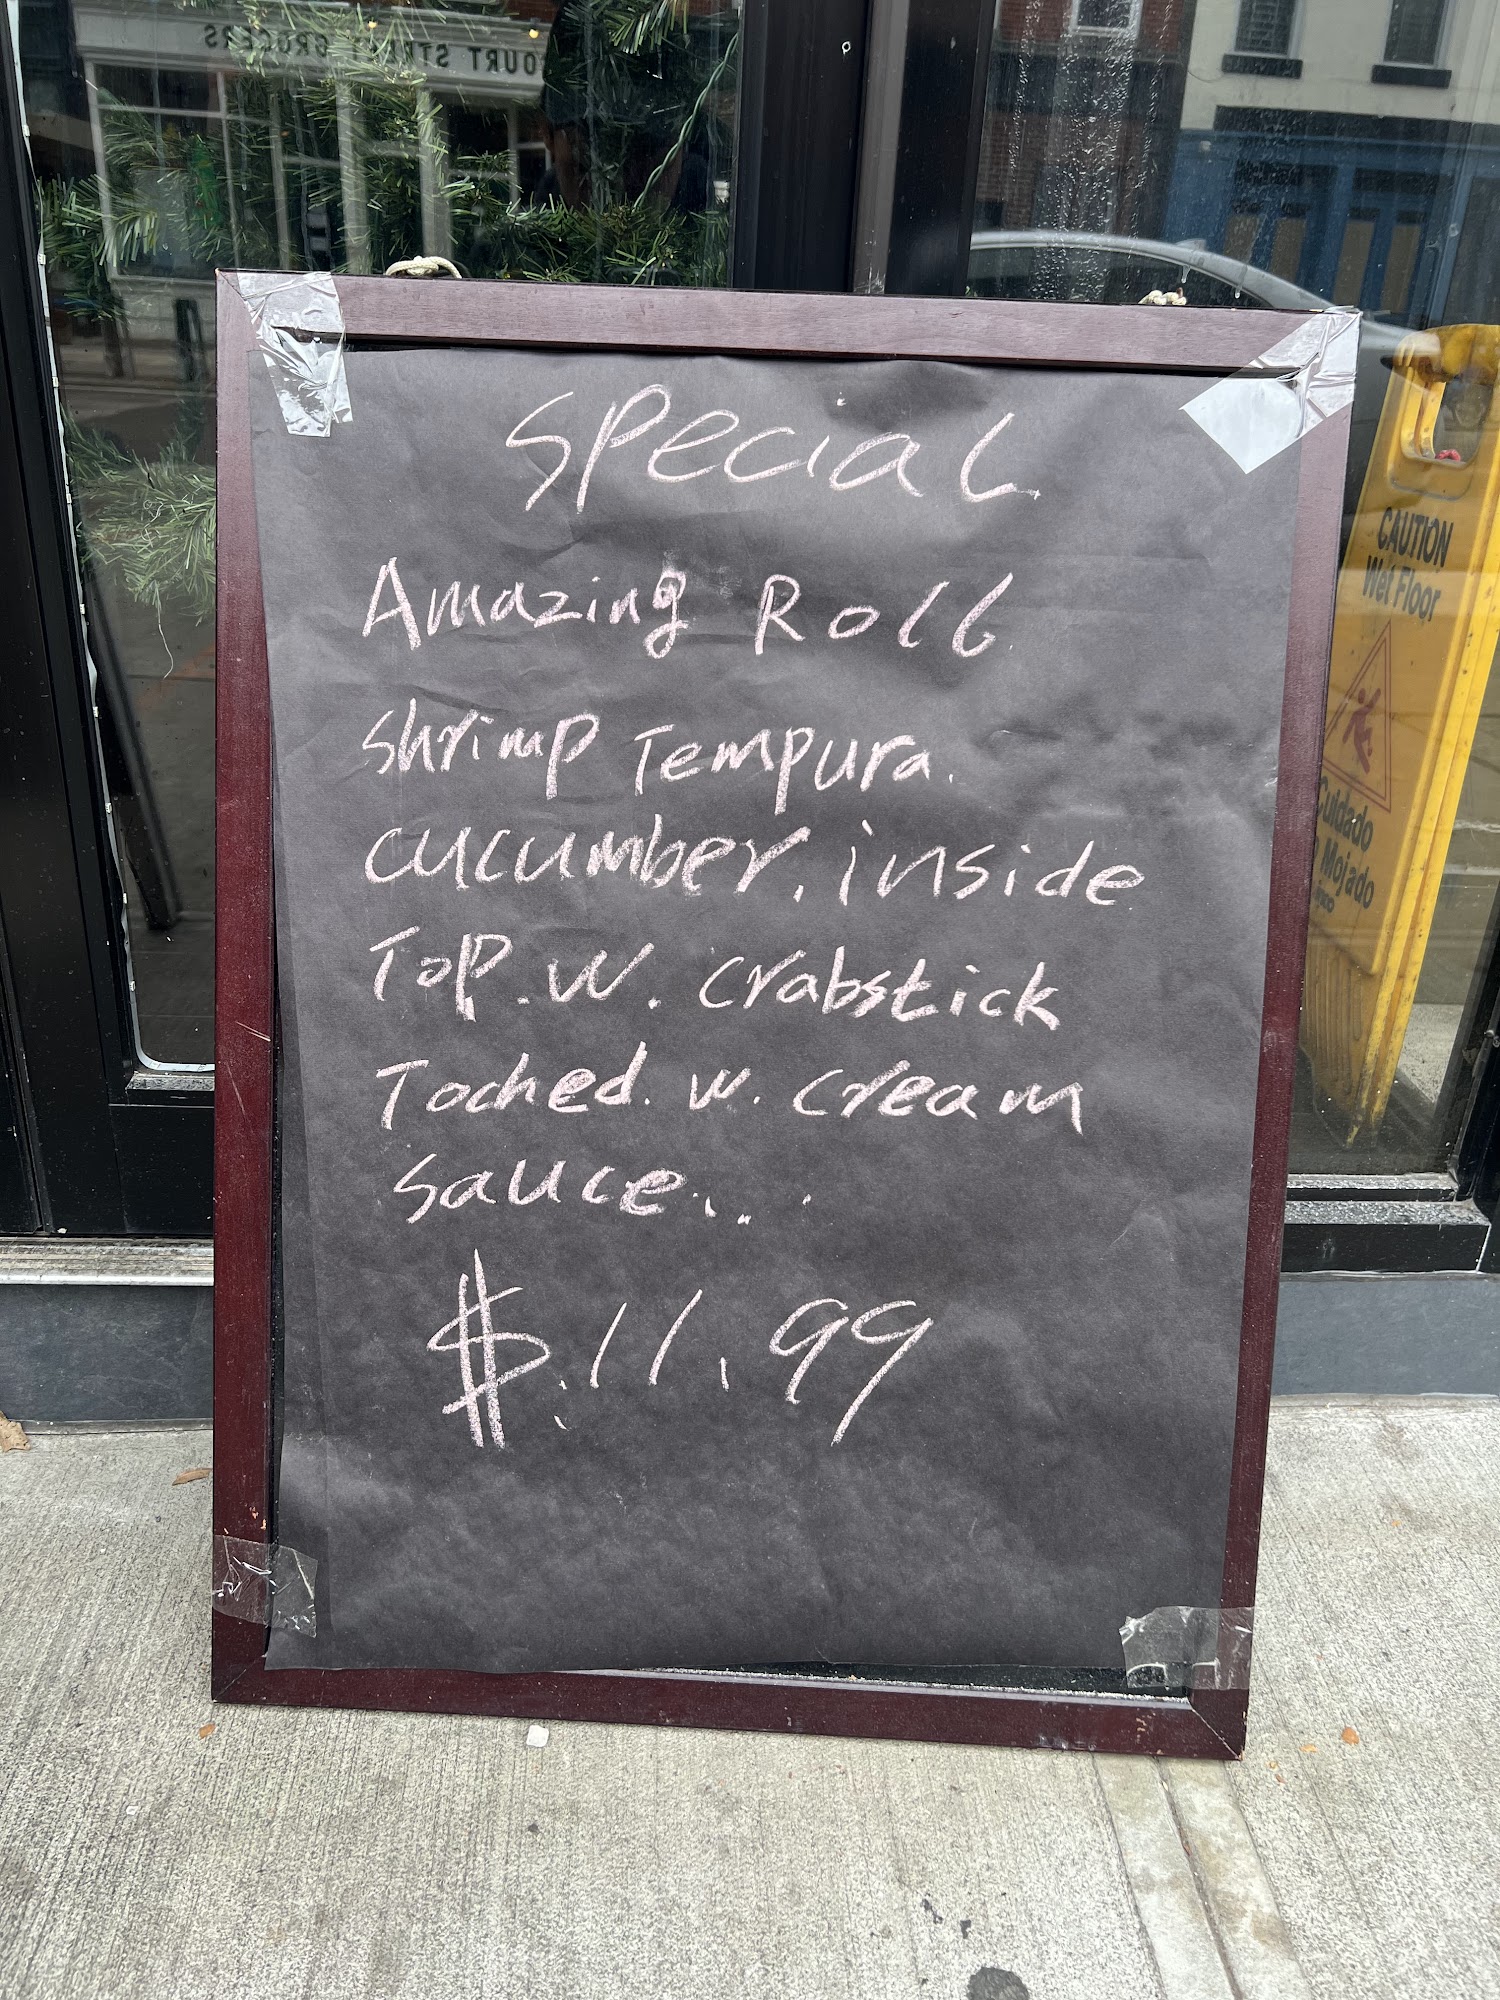 COURT STREET GROCERS
Special
Amazing Roll
Shrimp Tempura.
cucumber. inside
Top. w. crabstick
Toched. w. cream
sauce...
$.11.99
CAUTION
Wet Floor
Cuidado
Mojado